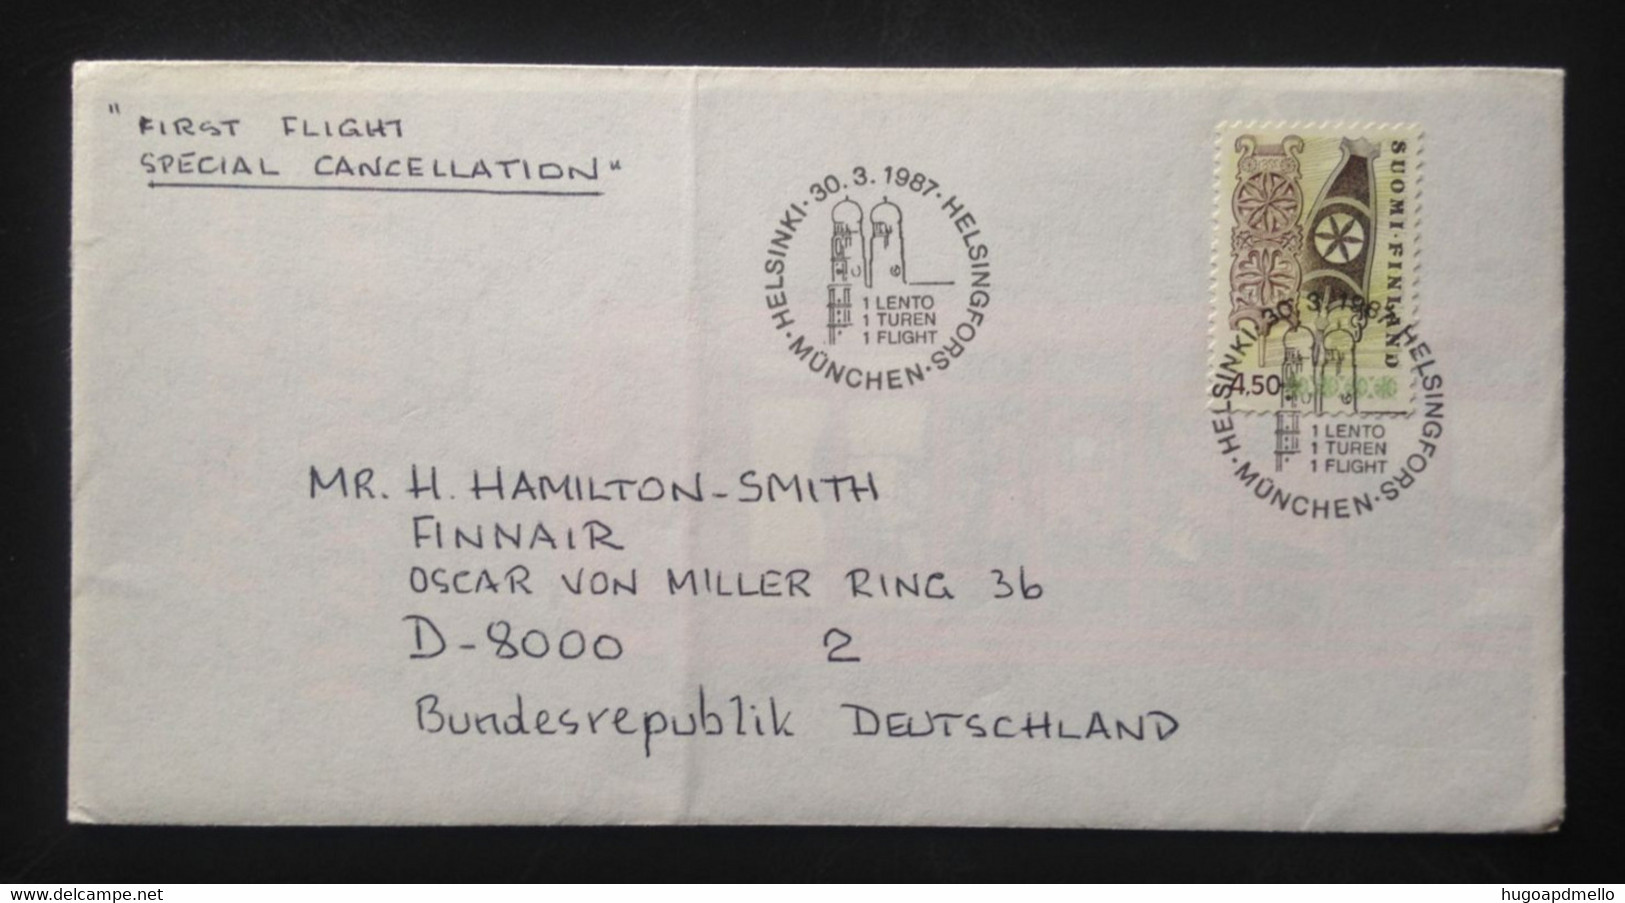 "FIRST FLIGHT
SPECIAL CANCELLATION"
HELSINKI · 30.3.1987 · HELSINGFORS · MÜNCHEN ·
1 LENTO
1 TUREN
1 FLIGHT
SUOMI · FINLAND
4,50
HELSINKI · 30.3.1987 · HELSINGFORS · MÜNCHEN ·
1 LENTO
1 TUREN
1 FLIGHT
MR. H. HAMILTON-SMITH
FINNAIR
OSCAR VON MILLER RING 36
D-8000 2
Bundesrepublik DEUTSCHLAND
delcampe.net
hugoapdmello